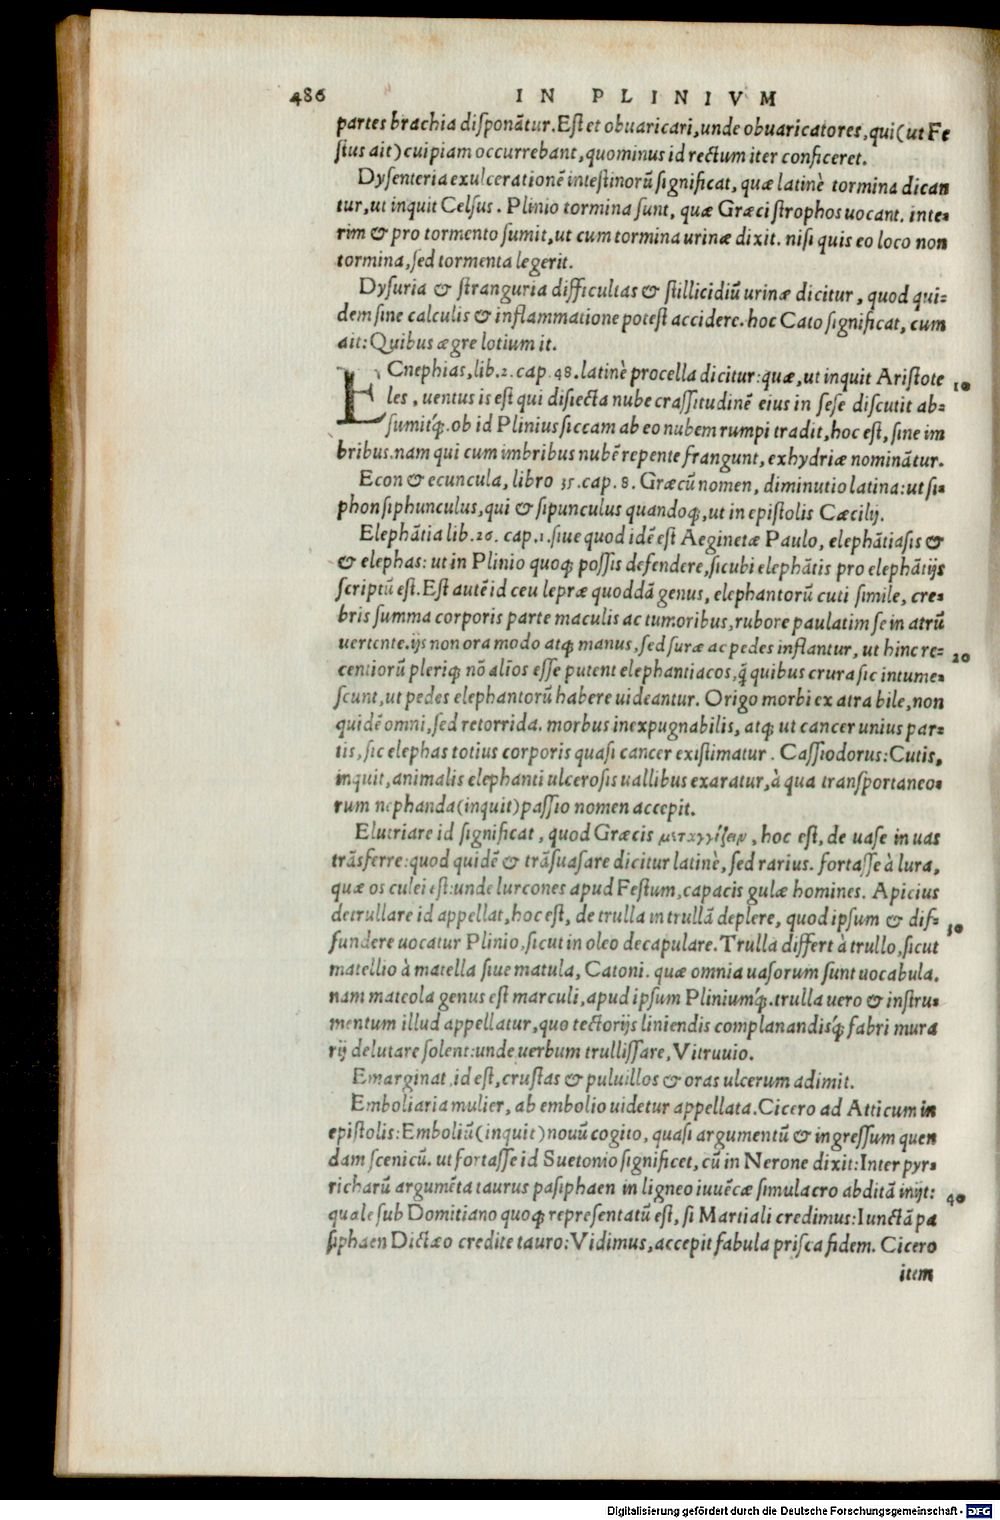 486 IN PLINIVM
partes brachia disponātur. Est et obuaricari, unde obuaricatores, qui (ut Fe
stus ait) cuipiam occurrebant, quominus id rectum iter conficeret.
Dysenteria exulcerationē intestinorū significat, quæ latinè tormina dican
tur, ut inquit Celsus. Plinio tormina sunt, quæ Græci strophos uocant. inte-
rim & pro tormento sumit, ut cum tormina urinæ dixit. nisi quis eo loco non
tormina, sed tormenta legerit.
Dysuria & stranguria difficultas & stillicidiū urinæ dicitur, quod qui=
dem sine calculis & inflammatione potest accidere. hoc Cato significat, cum
ait: Quibus ægre lotium it.
ECnephias, lib. 2. cap. 48. latinè procella dicitur: quæ, ut inquit Aristote 10
les, uentus is est qui disiecta nube crassitudinē eius in sese discutit ab=
sumitq́;. ob id Plinius siccam ab eo nubem rumpi tradit, hoc est, sine im
bribus. nam qui cum imbribus nubē repente frangunt, exhydriæ nominātur.
Econ & ecuncula, libro 35. cap. 8. Græcū nomen, diminutio latina: ut si-
phon siphunculus, qui & sipunculus quandoq;, ut in epistolis Cæcilij.
Elephātia lib. 26. cap. 1. siue quod idē est Aeginetæ Paulo, elephātiasis &
& elephas: ut in Plinio quoq; possis defendere, sicubi elephātis pro elephātijs
scriptū est. Est autē id ceu lepræ quoddā genus, elephantorū cuti simile, cre-
bris summa corporis parte maculis ac tumoribus, rubore paulatim se in atrū
uertente. ijs non ora modo atq; manus, sed suræ ac pedes inflantur, ut hinc re= 20
centiorū pleriq; nō alios esse putent elephantiacos, q̄ quibus crura sic intume-
scunt, ut pedes elephantorū habere uideantur. Origo morbi ex atra bile, non
quidē omni, sed retorrida. morbus inexpugnabilis, atq; ut cancer unius par-
tis, sic elephas totius corporis quasi cancer existimatur. Cassiodorus: Cutis,
inquit, animalis elephanti ulcerosis uallibus exaratur, à qua transportaneo-
rum nephanda (inquit) passio nomen accepit.
Elutriare id significat, quod Græcis μεταγγίζειν, hoc est, de uase in uas
trāsferre: quod quidē & trāsuasare dicitur latinè, sed rarius. fortasse à lura,
quæ os culei est: unde lurcones apud Festum, capacis gulæ homines. Apicius
detrullare id appellat, hoc est, de trulla in trullā deplere, quod ipsum & dif= 30
fundere uocatur Plinio, sicut in oleo decapulare. Trulla differt à trullo, sicut
matellio à matella siue matula, Catoni. quæ omnia uasorum sunt uocabula.
nam mateola genus est marculi, apud ipsum Pliniumq́;. trulla uero & instru-
mentum illud appellatur, quo tectorijs liniendis complanandisq́; fabri mura
rij delutare solent: unde uerbum trullissare, Vitruuio.
Emarginat, id est, crustas & puluillos & oras ulcerum adimit.
Emboliaria mulier, ab embolio uidetur appellata. Cicero ad Atticum in
epistolis: Emboliū (inquit) nouū cogito, quasi argumentū & ingressum quen
dam scenicū. ut fortasse id Suetonio significet, cū in Nerone dixit: Inter pyr-
richarū argumēta taurus pasiphaen in ligneo iuuēcæ simulacro abditā inijt: 40
quale sub Domitiano quoq; representatū est, si Martiali credimus: Iunctā pa
siphaen Dictæo credite tauro: Vidimus, accepit fabula prisca fidem. Cicero
item
Digitalisierung gefördert durch die Deutsche Forschungsgemeinschaft - DFG